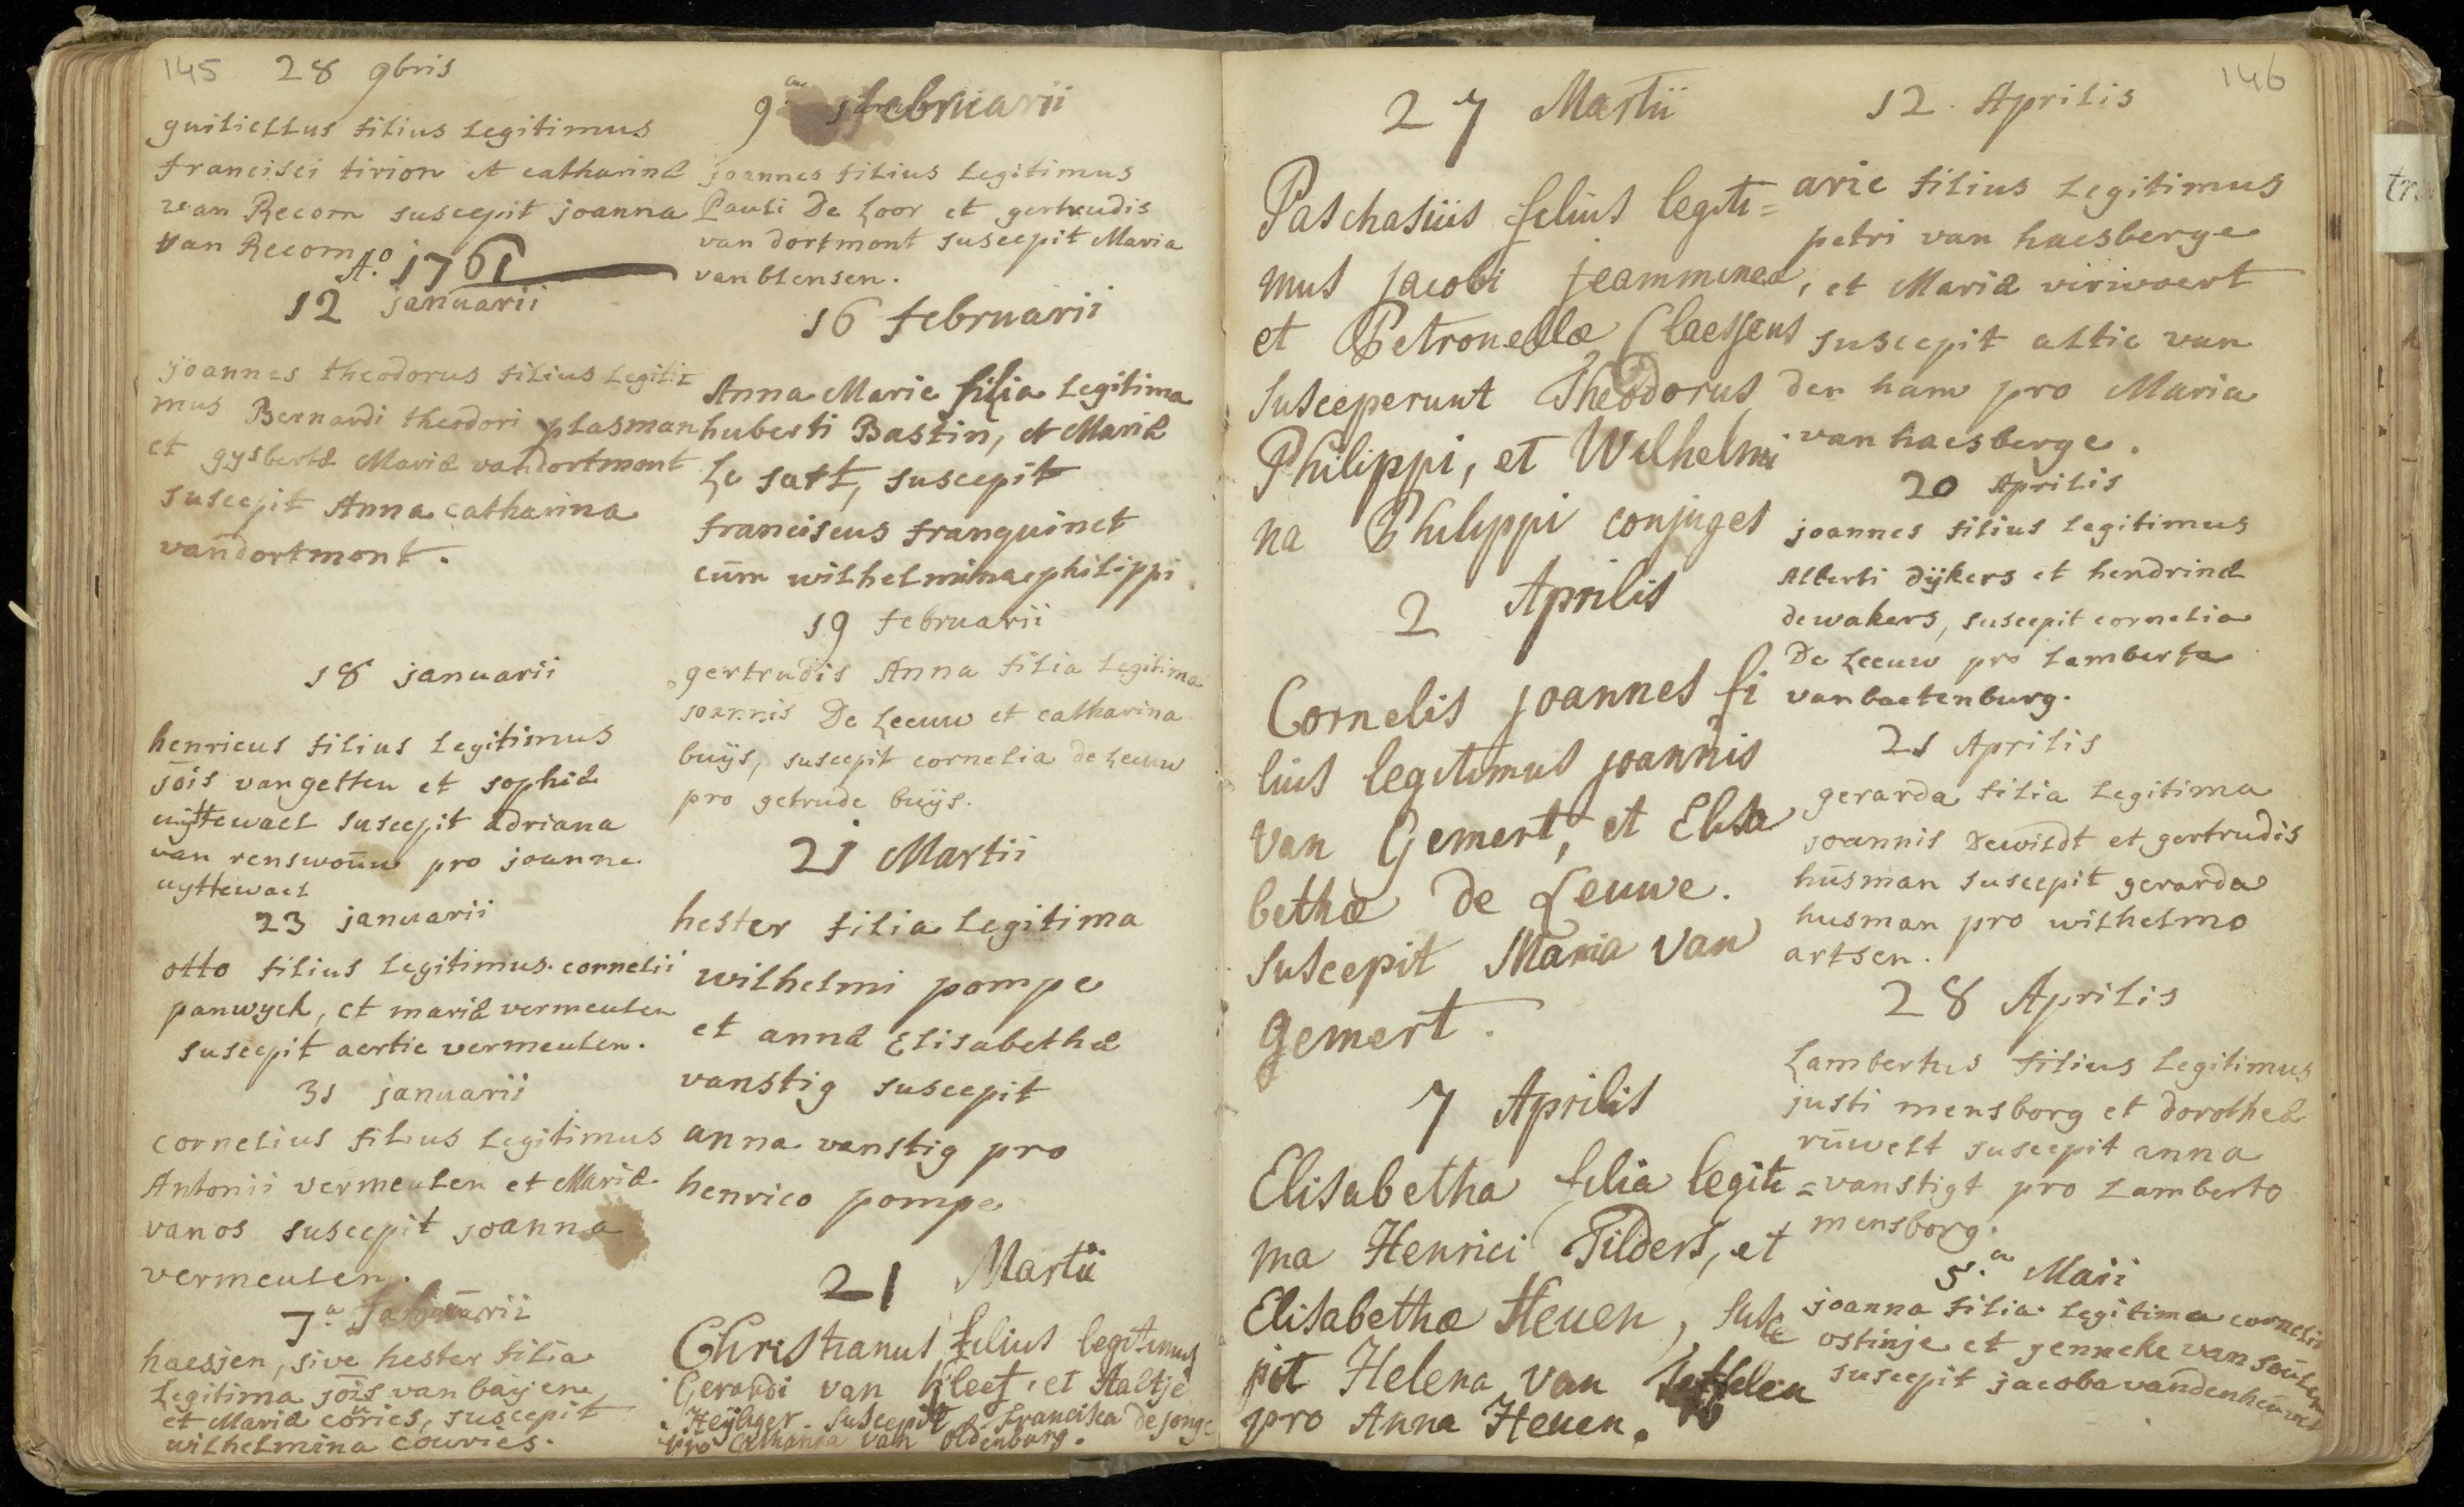 145 28 9bris
guiliellus filius legitimus
francisci tirion et catharinæ
van Recom suscepit joanna
van Recom
Ao. 1761
12 januarii
joannes theodorus filius legiti=
mus Bernardi theodori plasman
et gysbertæ Mariæ vandortmont
suscepit Anna catharina
vandortmont.
18 januarii
henricus filius legitimus
jois van getten et sophiæ
uyttewael suscepit adriana
van renswouw pro joanne
uyttewael
23 januarii
otto filius legitimus cornelii
panwyck, et mariæ vermeulen
suscepit aertie vermeulen.
31 januarii
cornelius filius legitimus
Antonii vermeulen et Mariæ
van os suscepit joanna
vermeulen.
7a
haesjen, sive hester filia
legitima jois van baijen
et Mariæ couries, suscepit
wilhelmina couries.
9a februarii
joannes filius legitimus
Pauli De Loor et gertrudis
van dortmont suscepit Maria
van blensen.
16 februarii
Anna Marie filia legitima
huberti Bastin, et Mariæ
Le sart, suscepit
franciscus franquinet
cum wilhelmina philippi
19 februarii
gertrudis Anna filia legitima
joannis De Leeuw et catharina
buijs, suscepit cornelia de leeuw
pro getrude buijs.
21 Martii
hester filia legitima
wilhelmi pompe
et annæ Elisabethæ
vanstig suscepit
anna vanstig pro
henrico pompe
21 Martii
Christianus filius legitimus
Gerardi van Kleef, et Aaltje
Heijliger. suscepit francisca de jonge
pro Catharina van oldenburg.
146
27 Martii
Paschasius filius legiti=
mus jacobi jeamminea,
et Petronellæ Claessens
susceperunt Theodorus
Philippi, et Wilhelmi
na Philippi conjuges
2 Aprilis
Cornelis joannes fi
lius legitimus joannis
van Gemert, et Elisa
bethæ de Leuwe.
suscepit Maria van
gemert.
7 Aprilis
Elisabetha filia legiti=
ma Henrici Tilders, et
Elisabethæ Heuen, susce
pit Helena van
pro Anna Heuen.
12. Aprilis
arie filius legitimus
petri van haesberge
et Mariæ virivaert
suscepit altie van
den ham pro Maria
van haesberge.
20 Aprilis
joannes filius legitimus
Alberti dijkers et hendrinæ
dewakers, suscepit cornelia
De Leeuw pro lamberta
vanbaetenburg.
21 Aprilis
gerarda filia legitima
joannis Dewildt et gertrudis
husman suscepit gerarda
husman pro wilhelmo
artsen.
28 Aprilis
Lambertus filius legitimus
justi mensborg et dorotheæ
ruwelt suscepit anna
vanstigt pro lamberto
mensborg.
5.a Maii
joanna filia legitima cornelii
ostinje et jenneke van
suscepit jacoba vandenheuvel